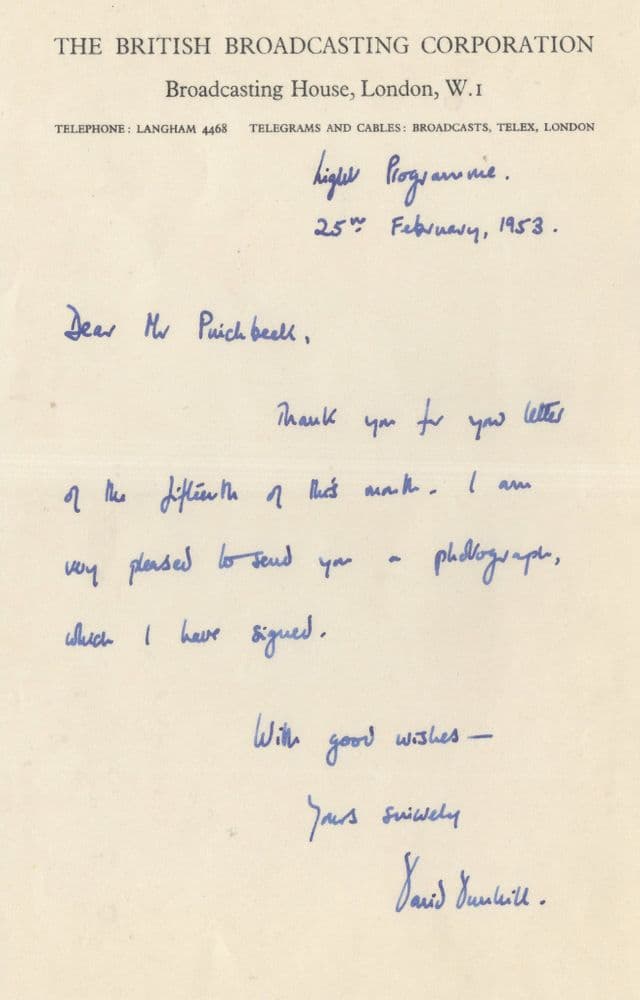 THE BRITISH BROADCASTING CORPORATION
Broadcasting House, London, W.1
TELEPHONE: LANGHAM 4468 TELEGRAMS AND CABLES: BROADCASTS, TELEX, LONDON
Light Programme.
25th February, 1953.
Dear Mr Pinchbeck,
Thank you for your letter
of the fifteenth of this month. I am
very pleased to send you a photograph,
which I have signed.
With good wishes —
Yours sincerely
David Dunhill.